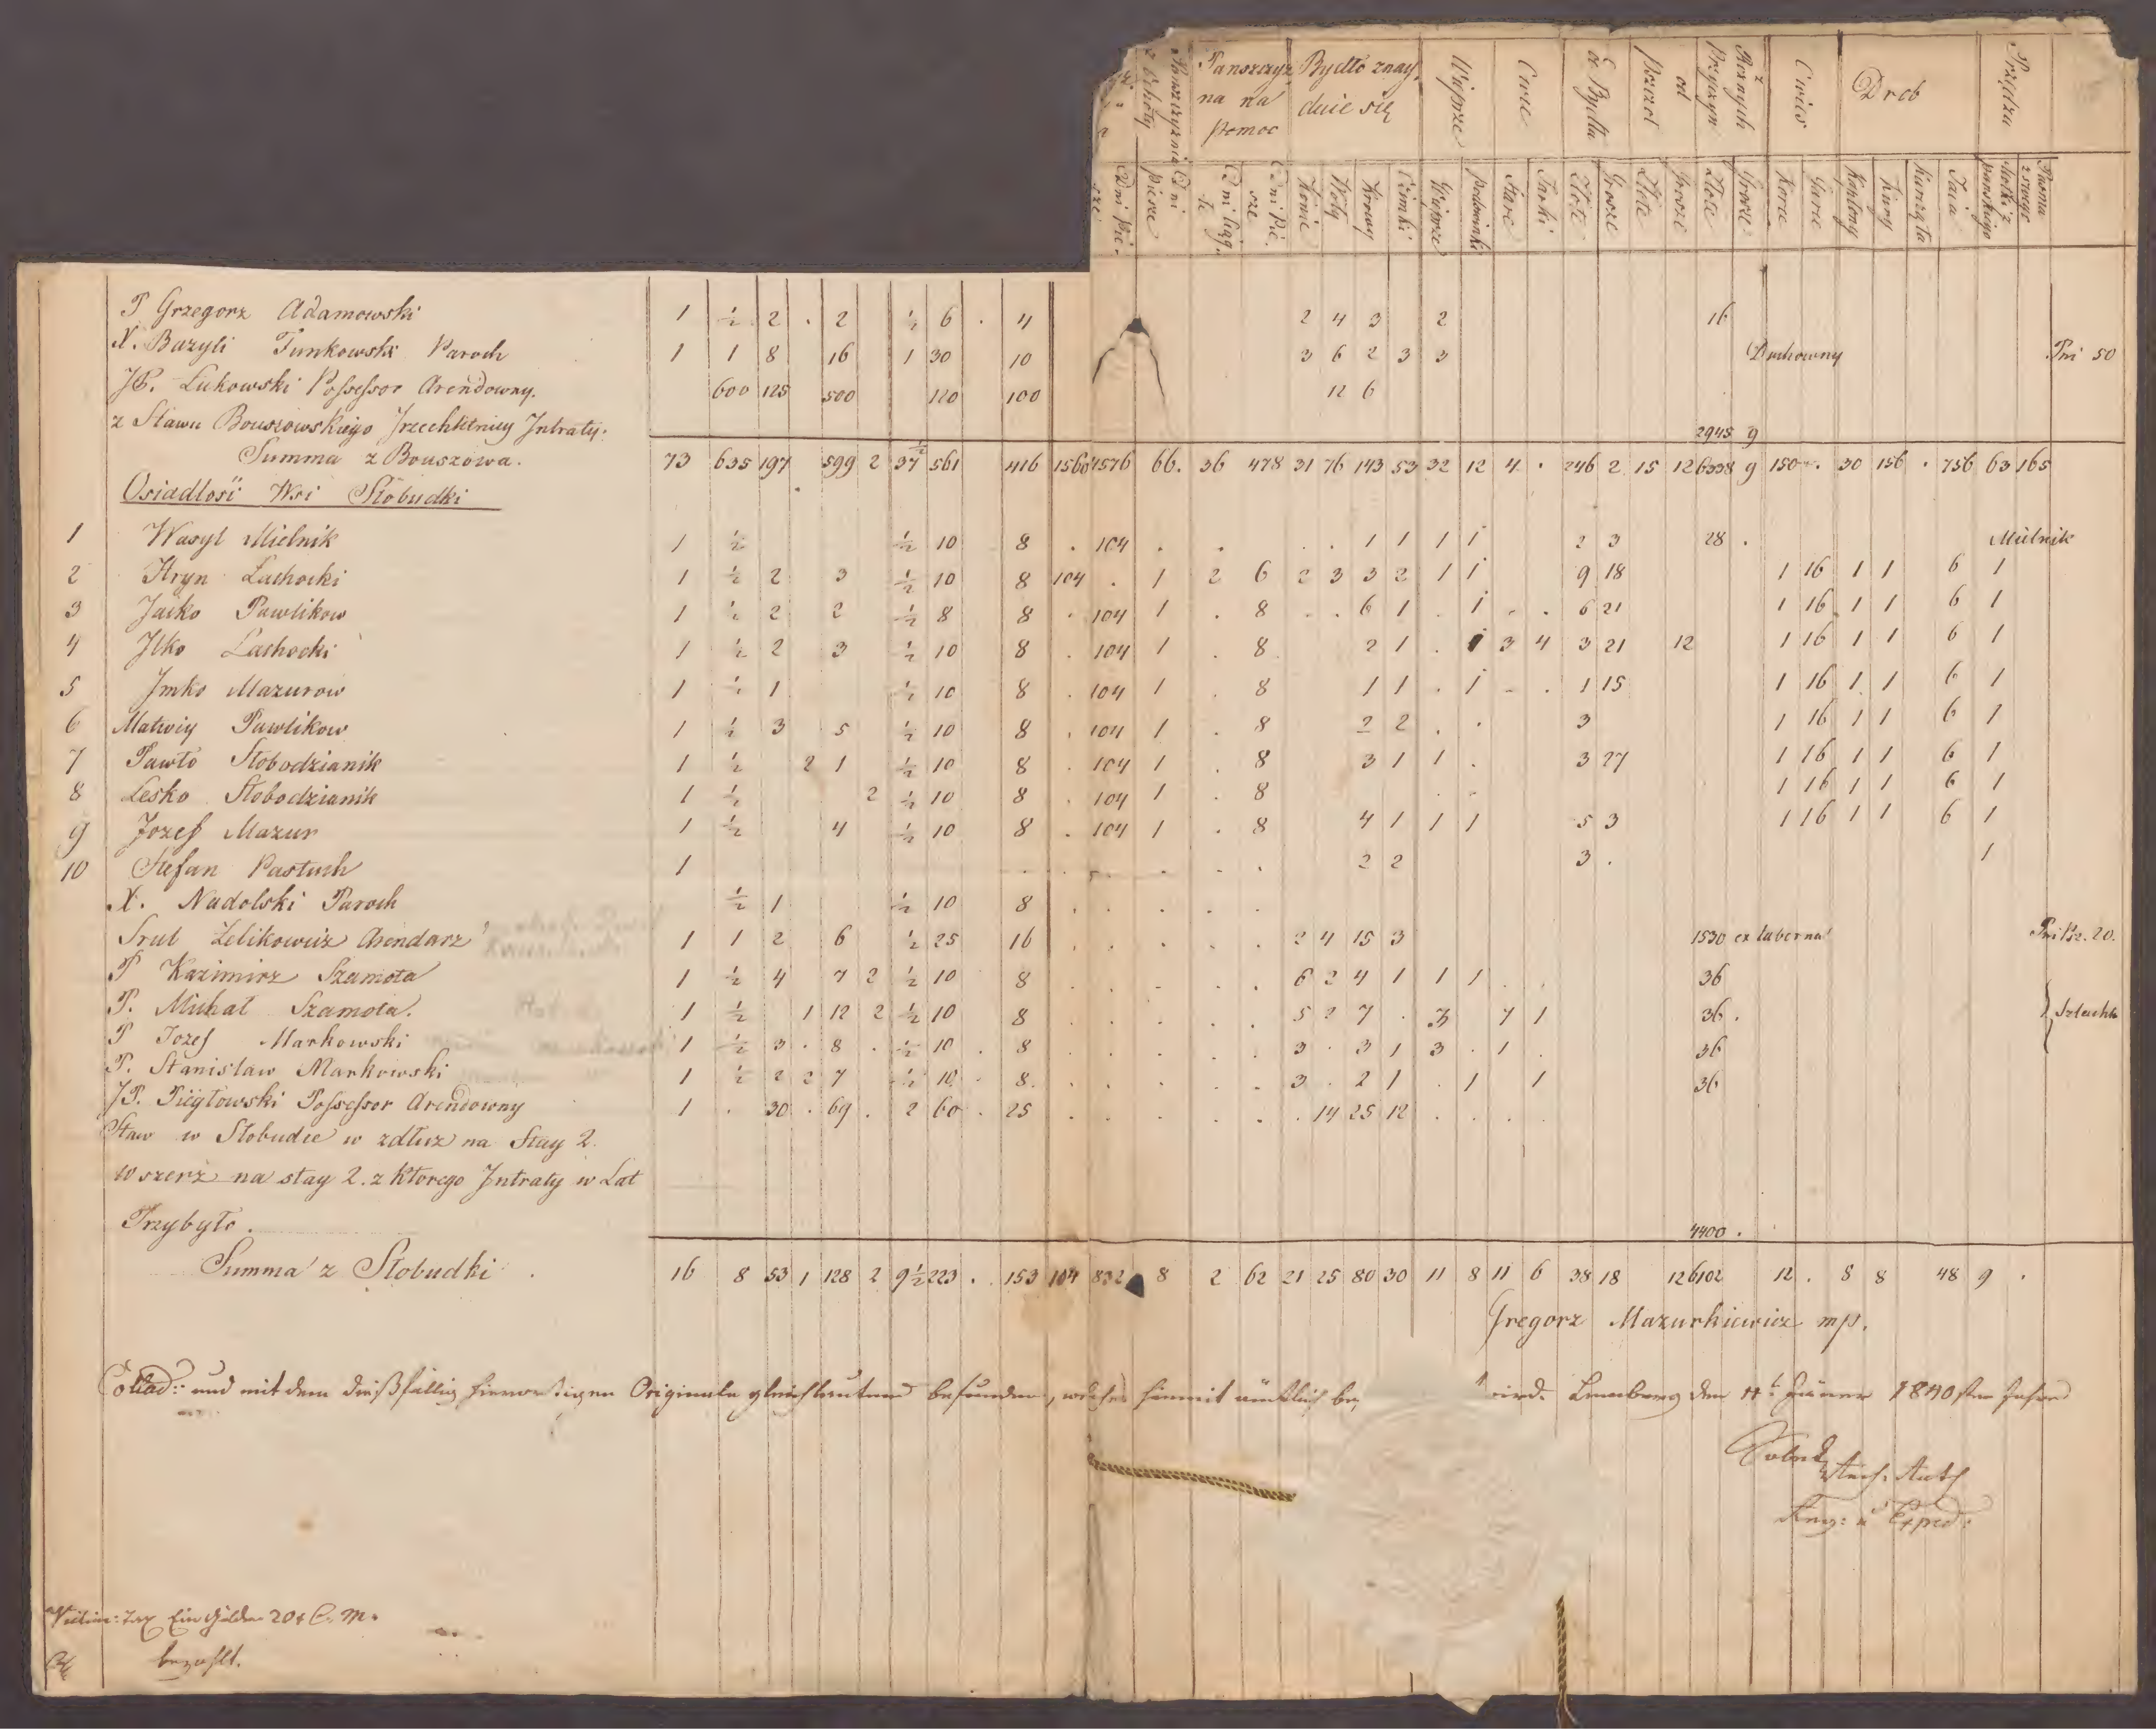 Panszczyzna z Ochoty Dni piesze
Panszczyzna na pomoc
Bydło znayduie się
Wieprze
Owce
Od Bydła
od Pszczoł
z Roznych Przyczyn
Owies
Drob
Przędza
Dni Pie-sze
Dni ciąg-łe
Dni Pie-sze
Konie
Woły
Krowy
Ciołki
Wieprze
podswinki
Stare
Jarki
Złote
Grosze
Złote
Grosze
Złote
Grosze
Korce
Garce
Kapłony
Kury
Kurczęta
Jaia
Motki z panskiego
Pasma z swego
P Grzegorz Adamowski 1 ½ 2 . 2 ½ 6 . 4 2 4 3 2 16
X. Bazyli Tunkowski Paroch 1 1 8 16 1 30 10 3 6 2 3 3 Duchowny Pni 50
JP. Lukowski Possessor Arendowny. 600 125 500 120 100 12 6
z Stawu Bouszowskiego Trzechletniey Intraty. 2945 9
Summa z Bouszowa. 73 635 197 599 2 37½ 561 416 1560 4576 66. 36 478 31 76 143 53 32 12 4 . 246 2 15 12 6338 9 150 . 30 156 . 756 63 165
Osiadłosć Wsi Słobudki
1 Wasyl Mielnik 1 ½ ½ 10 8 . 104 . . . . 1 1 1 1 2 3 28 . Mielnik
2 Hryn Lachocki 1 ½ 2 3 ½ 10 8 104 . 1 2 6 2 3 3 2 1 1 9 18 1 16 1 1 6 1
3 Jacko Pawlikow 1 ½ 2 2 ½ 8 8 . 104 1 . 8 . . 6 1 . 1 . . 6 21 1 16 1 1 6 1
4 Ilko Lachocki 1 ½ 2 3 ½ 10 8 . 104 1 . 8 2 1 . 1 3 4 3 21 12 1 16 1 1 6 1
5 Jmko Mazurow 1 ½ 1 ½ 10 8 . 104 1 . 8 1 1 . 1 . . 1 15 1 16 1 1 6 1
6 Matwiy Pawlikow 1 ½ 3 5 ½ 10 8 . 104 1 . 8 2 2 . . 3 1 16 1 1 6 1
7 Pawło Słobodzianik 1 ½ 2 1 ½ 10 8 . 104 1 . 8 3 1 1 . 3 27 1 16 1 1 6 1
8 Lesko Słobodzianik 1 ½ 2 ½ 10 8 . 104 1 . 8 . . 1 16 1 1 6 1
9 Jozef Mazur 1 ½ 4 ½ 10 8 . 104 1 . 8 4 1 1 1 5 3 1 16 1 1 6 1
10 Stefan Pastuch 1 . . . . . . 2 2 3 . 1
X. Nadolski Paroch ½ 1 ½ 10 8 . . . . .
Srul Zelikowicz Arendarz 1 1 2 6 ½ 25 16 . . . . . 2 4 15 3 1530 ex taberna Pni Psz. 20.
P Kazimirz Szamota 1 ½ 4 7 2 ½ 10 8 . . . . . 6 2 4 1 1 1 . . 36
P. Michał Szamota. 1 ½ 1 12 2 ½ 10 8 . . . . . 5 2 7 . 3 7 1 36 . } Szlachta
P Jozef Markowski 1 ½ 3 . 8 . ½ 10 . 8 . . . . . 3 . 3 1 3 . 1 . 36
P. Stanisław Markowski 1 ½ 2 2 7 ½ 10 . 8. . . . . . 3 . 2 1 . 1 1 36
JP. Piegłowski Possessor Arendowny 1 . 30 . 69 . 2 60 . 25 . . . . . . 14 25 12 . . . .
Staw w Słobudce w zdłuz na Stay 2.
wszerz na stay 2. z ktorego Intraty w Lat
Przybyło. 4400 .
Summa z Słobudki 16 8 53 1 128 2 9½ 223 . . 153 104 832 8 2 62 21 25 80 30 11 8 11 6 38 18 12 6102 12 . 8 8 48 9 .
Gregorz Mazurkiewicz mp.
Collad: und mit dem dießfällig hierortigen Originale gleichlautend befunden, welches hiemit ämtlich be wird. Lemberg den Jäner 1840sten Jahres
Exped:
Vidim: Tax Ein Gulden 20 x C. M.
bezahlt.